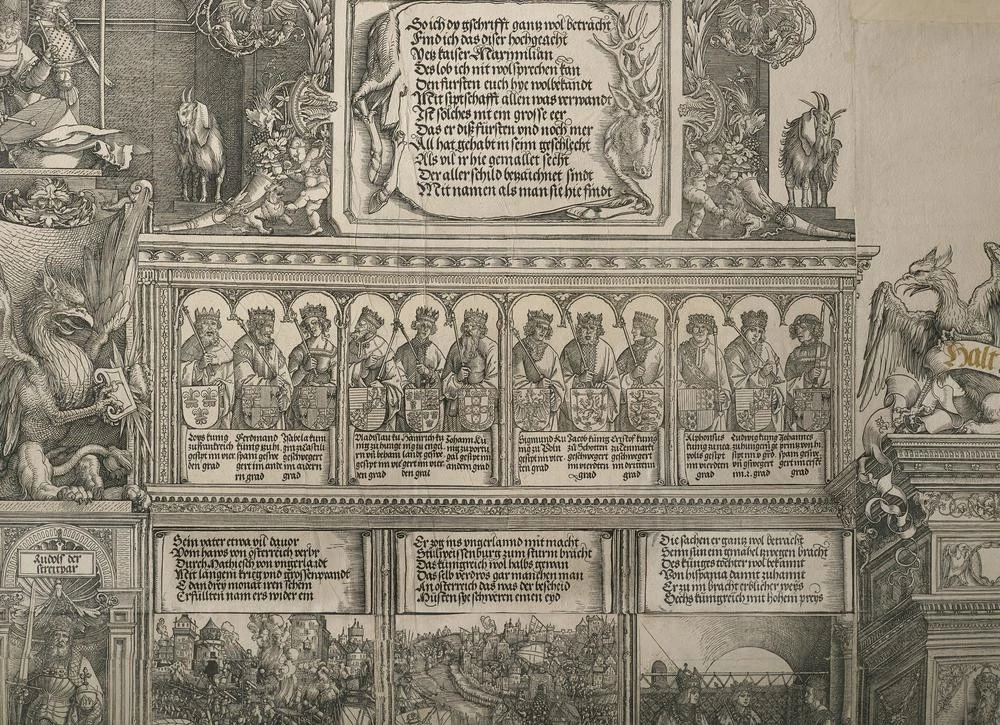 So ich du gschrifft gantz wol betracht
Find ich das diser hochgeacht
Yetz kaiser Maximilian
Des lob ich nit wolsprechen kan
Den fursten euch hye wolbekandt
Mit siptschafft allen was verwandt
Yst solches nit ein grosse eer
Das er diß fürsten vnd noch mer
All hat gehabt in seim geschlecht
Als vil ir hie gemallet secht
Der aller schild betzaichnet sindt
Mit namen als man sie hie findt
Halt
Loys kung
zu franckreich
gesipt im vier
den grad
Ferdinand
kunig zu hi
spani gesipt
gert im ande
rn grad
Isabela kuni
gin zu Castili
geschwegert
im andern
grad
Vladislau ku
nig zu hunge
rn vn behem
gesipt im vier
den grad
Hainrich ku
nig zu engel
land geschwe
gert im vier
den grad
Johann Ku
nig zu portu
gal gesipt im
andern grad
Sigmund Ku
nig zu Poln
gesipt im vier
ten grad
Jacob kunig
zu Schotten
geschwegert
im vierdten
grad
Cristof kunig
zu Denmarckt
geschwegert
im dritten
grad
Alphonsus
gesipt
im vierdten
grad
Ludwig kunig
zu hungern
grad
Johannes
printz von hi
spani geschwe
gert im erste
grad
Sein vater etwa vil dauor
Vom haws von österreich verlor
Durch Mathiesch von vngerlandt
Mit langem krieg vnd grossem brandt
E dan drey monat sich sichem
Erfüllten nam ers wider ein
Er zog ins vngerlannd mit macht
Stulweissenburg zum sturm bracht
Das kunigreich wol halbs gewan
Das selb verdros gar manchen man
An österreich das was der bescheid
Musten sye schweren einen eyd
Die sachen er gantz wol betracht
Seim sun ein gmahel zwegen bracht
Des kunges tochter wol bekannt
Von hispania damit zuhannt
Er zu im bracht erblicher weys
Sechs kunigreich mit hohem preys
Rudolf der
streitpar